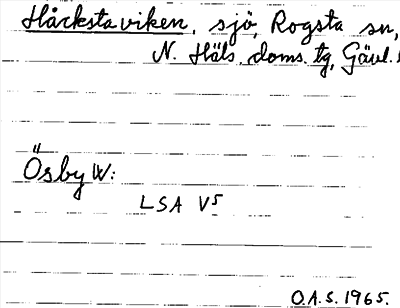 Hårkstaviken, sjö, Rogsta sn,
N. Häls. doms. tg, Gävl.
Ösby W:
LSA V5
O.A.S. 1965.